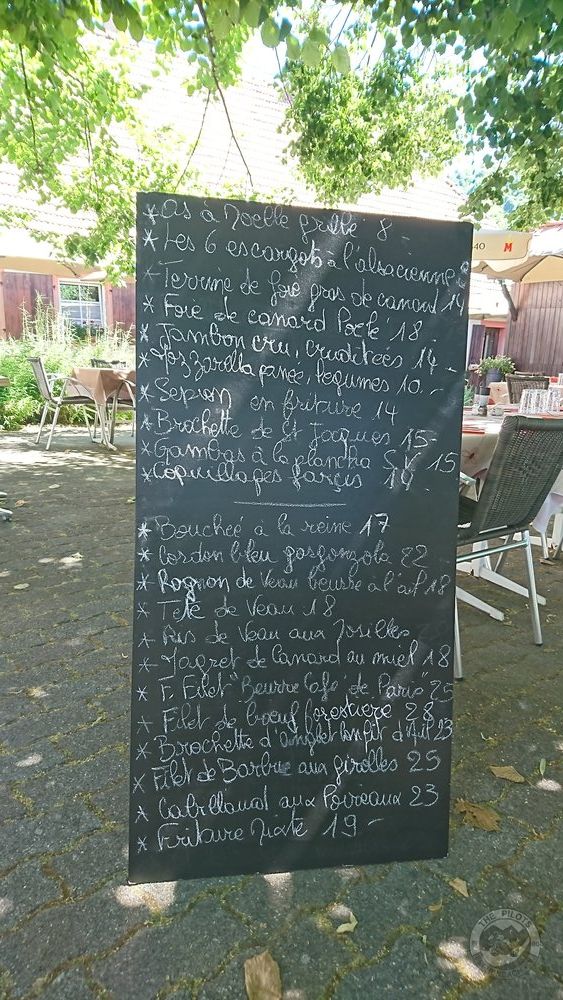 * Os à Moelle grillé 8 -
* Les 6 escargots à l'alsacienne 8
* Terrine de foie gras de canard 14
* Foie de canard Poélé 18
* Jambon cru, crudités 14 -
* Mozzarella panée, légumes 10. -
* Sepion en friture 14
* Brochette de St Jacques 15 -
* Gambas à la plancha S.V 15
* Coquillages farcis 14 -
* Boucheé à la reine 17
* Cordon bleu gorgonzola 22
* Rognon de Veau beurre à l'ail 18
* Tete de Veau 18
* Ris de Veau aux Morilles
* Magret de Canard au miel 18
* F. Filet "Beurre Café de Paris" 25
* Filet de boeuf forestière 28
* Brochette d'onglet confit d'Ail 23
* Filet de Barbue aux girolles 25
* Cabillaud aux Poireaux 23
* Friture Mixte 19 -
40 M
THE PILOTS